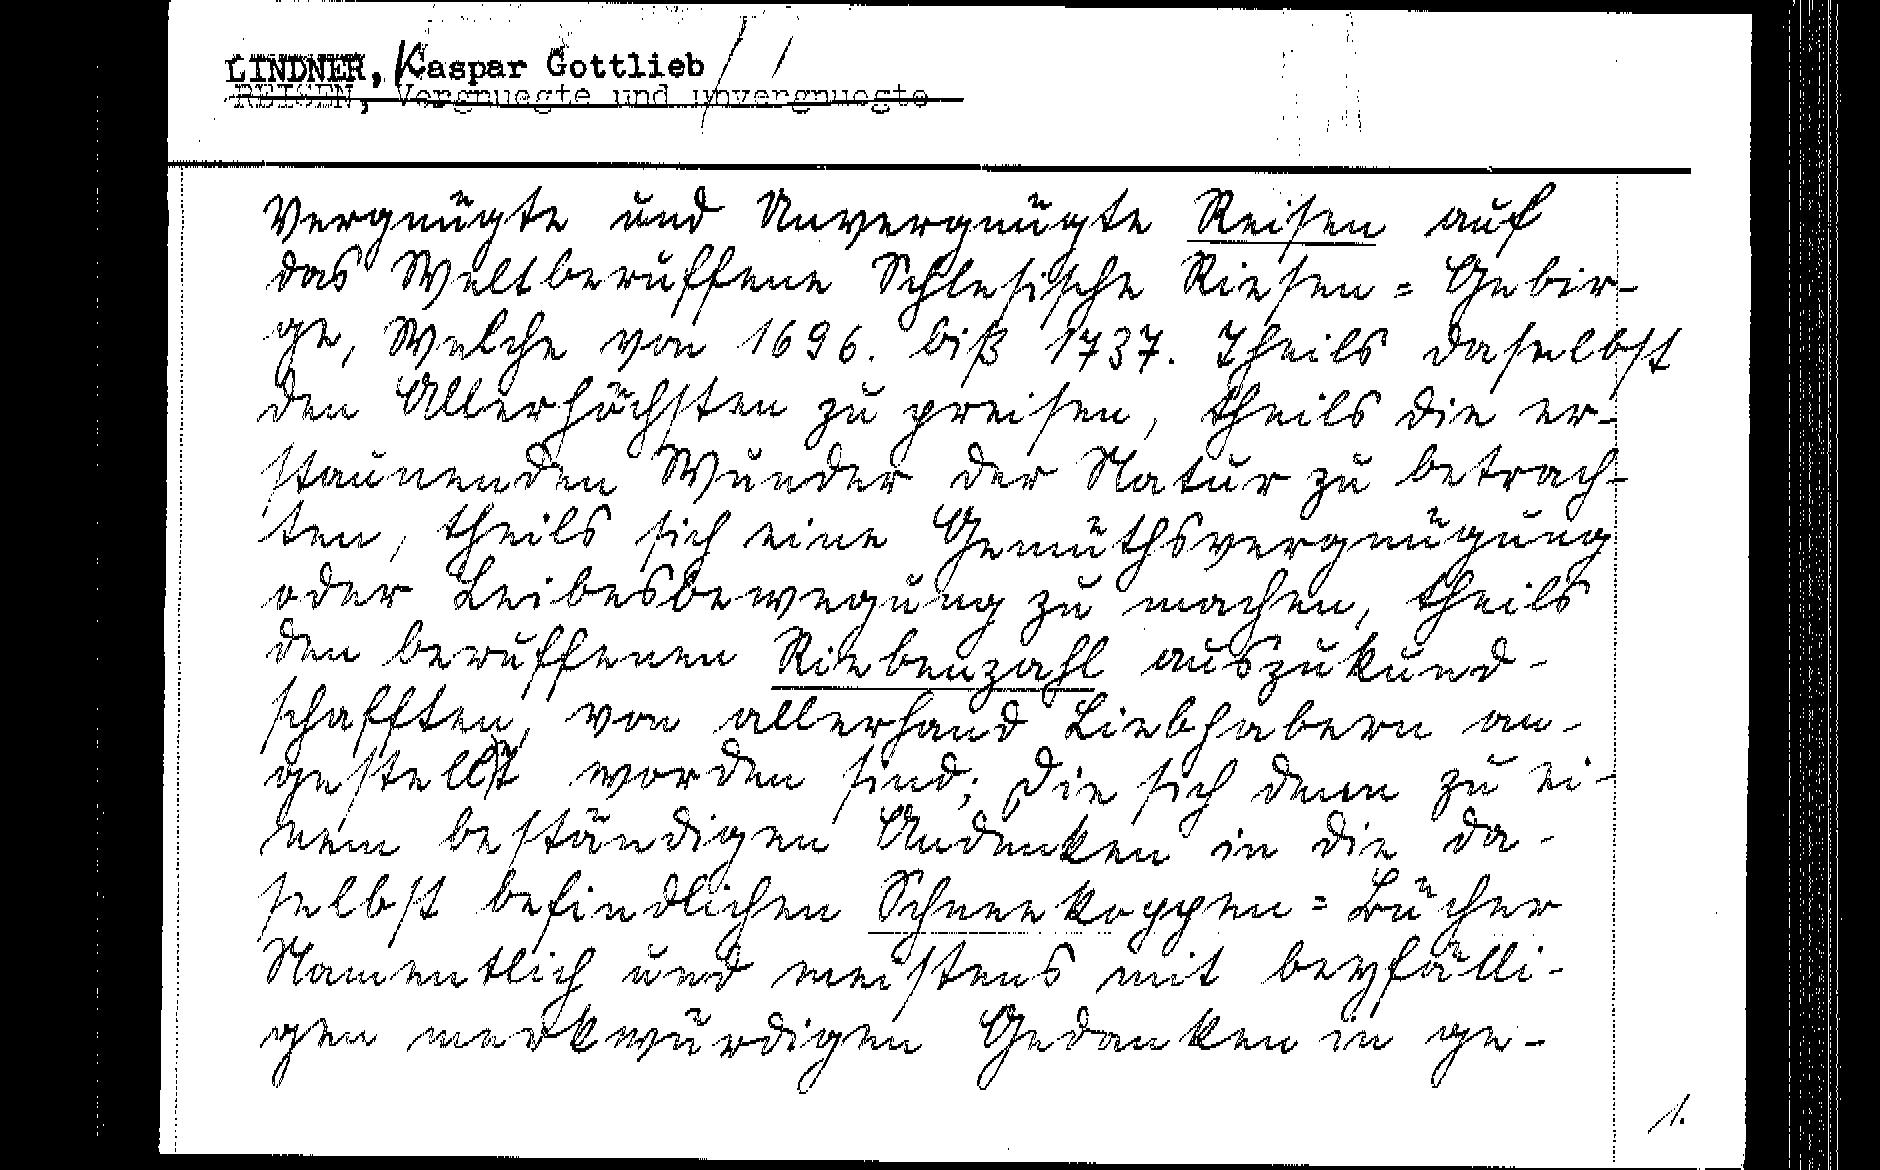 LINDNER, Kaspar Gottlieb
REISEN, Vergnuegte und unvergnuegte
Vergnügte und Unvergnügte Reisen auf
das Weltberuffene Schlesische Riesen = Gebir-
ge, Welche von 1696. biß 1737. Theils daselbst
den Allerhöchsten zu preisen, theils die er-
staunenden Wunder der Natur zu betrach-
ten, theils sich eine Gemüthsvergnügung
oder Leibesbewegung zu machen, theils
den beruffenen Riebenzahl auszukund-
schafften, von allerhand Liebhabern an-
gestellt worden sind; Die sich denn zu ei-
nem beständigen Andenken in die da-
selbst befindlichen Schneekoppen = Bücher
Namentlich und meistens mit beyfälli-
gen merkwürdigen Gedanken in ge-
1.